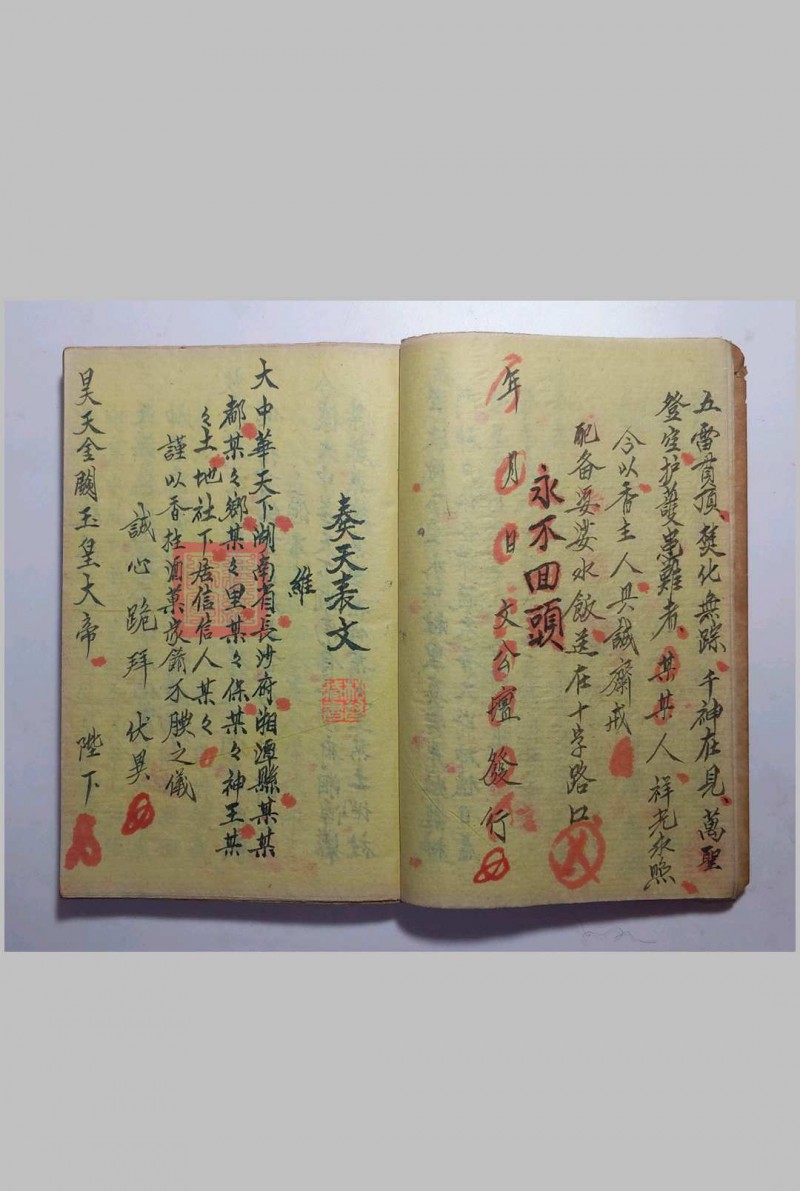 五雷首頂焚化無踪千神在見萬聖
登空护護患難者某某人祥光永照
今以香主人具誠齋戒
配备婆娑水飯送在十字路口
永不回頭
年月日文公壇發行
奏天表文
維
大中華天下湖南省長沙府湘潭縣某某
都某々鄉某々里某々保某々神王某
々土地社下居信信人某々
謹以香柱酒菓敬餚不腆之儀
誠心跪拜伏異
昊天金闕玉皇大帝陛下